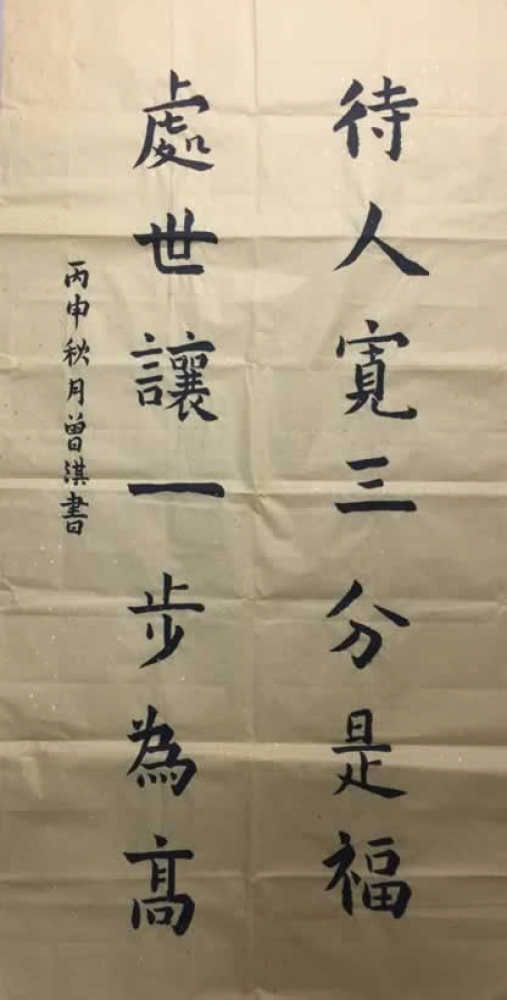 待人寬三分是福
處世讓一步為高
丙申秋月曾淇書